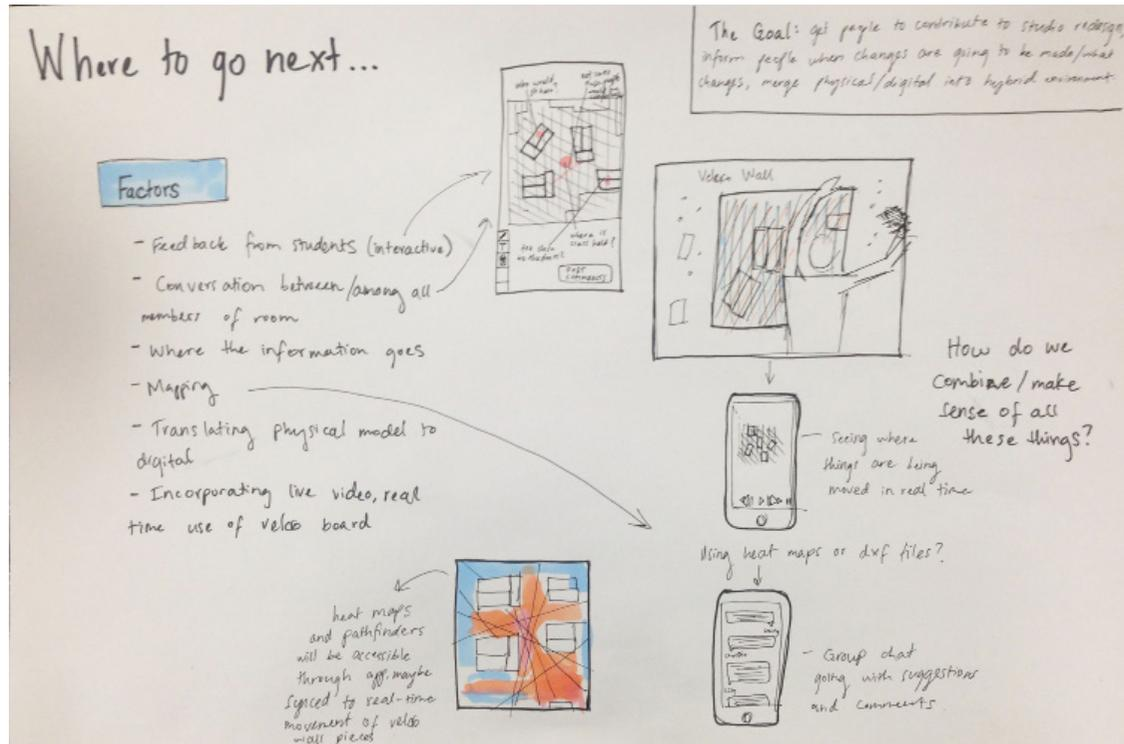 Where to go next...
The Goal: get people to contribute to studio redesign,
inform people when changes are going to be made/what
changes, merge physical/digital into hybrid environment.
Factors
- Feedback from students (interactive)
- Conversation between/among all
members of room
- Where the information goes
- Mapping
- Translating physical model to
digital
- Incorporating live video, real
time use of velcro board
who would
sit here?
not sure
people
would
where is
class held?
too close
POST
COMMENTS
Velcro Wall
How do we
combine/make
sense of all
these things?
- Seeing where
things are being
moved in real time
Using heat maps or dxf files?
- Group chat
going with suggestions
and comments
heat maps
and pathfinders
will be accessible
through app, maybe
synced to real-time
movement of velcro
wall pieces